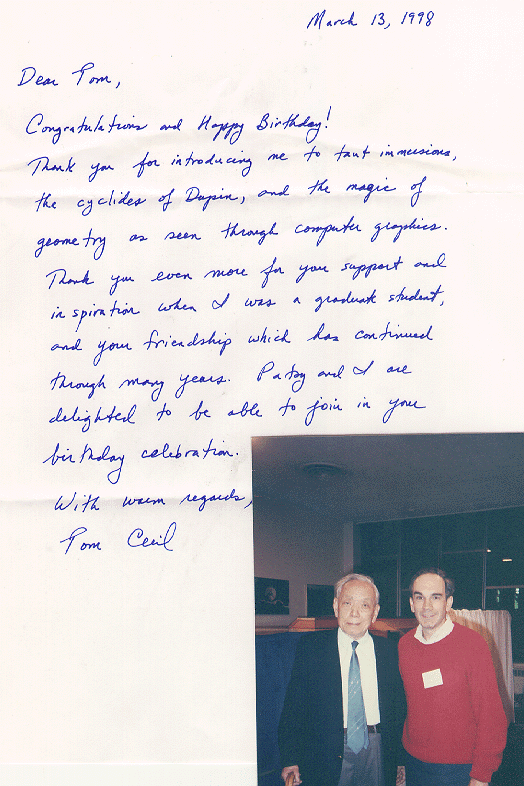 March 13, 1998
Dear Tom,
Congratulations and Happy Birthday!
Thank you for introducing me to taut immersions,
the cyclides of Dupin, and the magic of
geometry as seen through computer graphics.
Thank you even more for your support and
inspiration when I was a graduate student,
and your friendship which has continued
through many years. Patsy and I are
delighted to be able to join in your
birthday celebration.
With warm regards,
Tom Cecil